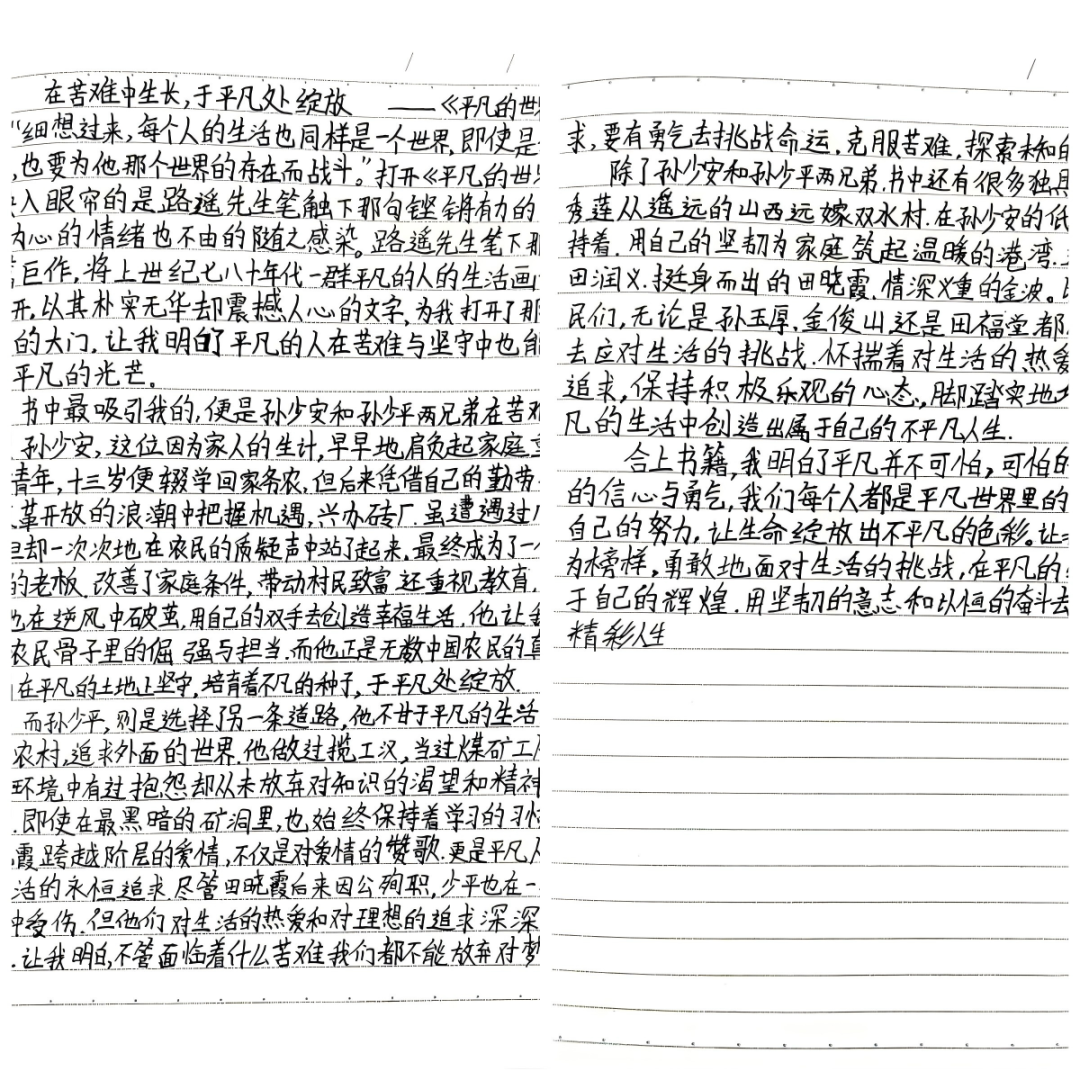 在苦难中生长,于平凡处绽放 ——《平凡的世
“细想过来,每个人的生活也同样是一个世界,即使是
,也要为他那个世界的存在而战斗。”打开《平凡的世
入眼帘的是路遥先生笔触下那句铿锵有力的
内心的情绪也不由的随之感染。路遥先生笔下那
巨作,将上世纪七八十年代一群平凡的人的生活画
开,以其朴实无华却震撼人心的文字,为我打开了那
的大门,让我明白了平凡的人在苦难与坚守中也能
平凡的光芒。
书中最吸引我的,便是孙少安和孙少平两兄弟在苦难
.孙少安,这位因为家人的生计,早早地肩负起家庭
青年,十三岁便辍学回家务农,但后来凭借自己的勤带
革开放的浪潮中把握机遇,兴办砖厂.虽遭遇过
但却一次次地在农民的质疑声中站了起来.最终成为了一
的老板.改善了家庭条件,带动村民致富.还重视教育.
他在逆风中破茧,用自己的双手去创造幸福生活.他让我
农民骨子里的倔强与担当.而他正是无数中国农民的真
在平凡的土地上坚守,培育着不凡的种子,于平凡处绽放.
而孙少平,则是选择了另一条道路,他不甘于平凡的生活
农村,追求外面的世界.他做过揽工汉,当过煤矿工
环境中有过抱怨却从未放弃对知识的渴望和精神
.即使在最黑暗的矿洞里,也始终保持着学习的习惯
霞跨越阶层的爱情,不仅是对爱情的赞歌.更是平凡人
活的永恒追求.尽管田晓霞后来因公殉职,少平也在一
中受伤.但他们对生活的热爱和对理想的追求深深
.让我明白,不管面临着什么苦难我们都不能放弃对梦
求,要有勇气去挑战命运,克服苦难,探索未知的
除了孙少安和孙少平两兄弟.书中还有很多独具
秀莲从遥远的山西远嫁双水村.在孙少安的低
持着.用自己的坚韧为家庭筑起温暖的港湾.
田润义.挺身而出的田晓霞.情深义重的金波。
民们,无论是孙玉厚.金俊山还是田福堂.都
去应对生活的挑战.怀揣着对生活的热爱
追求,保持积极乐观的心态,脚踏实地
凡的生活中创造出属于自己的不平凡人生.
合上书籍,我明白了平凡并不可怕,可怕的
的信心与勇气,我们每个人都是平凡世界里的
自己的努力,让生命绽放出不平凡的色彩。让
为榜样,勇敢地面对生活的挑战,在平凡的
于自己的辉煌.用坚韧的意志和以恒的奋斗去
精彩人生